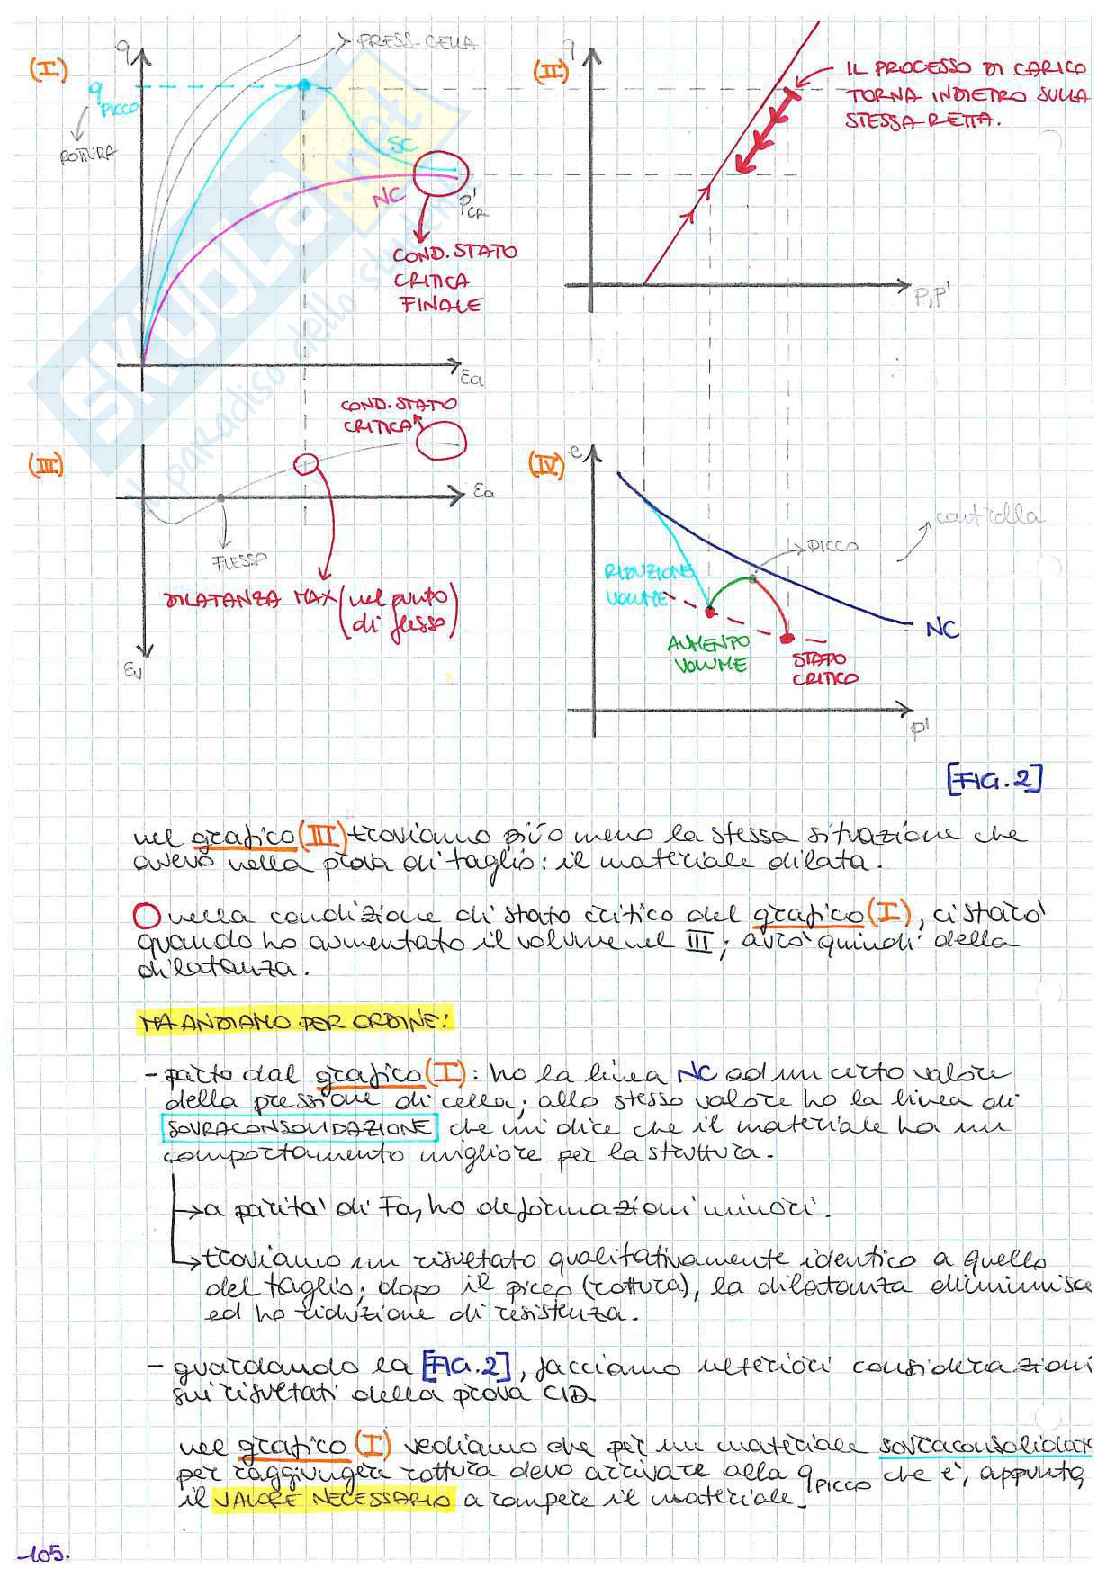 (I)
q
PRESS. CELLA
q PICCO
ROTTURA
SC
NC
P'CR
COND. STATO
CRITICA
FINALE
Ea
(II)
q
IL PROCESSO DI CARICO
TORNA INDIETRO SULLA
STESSA RETTA.
P,P'
(III)
COND. STATO
CRITICA
Ea
FLESSO
DILATANZA MAX (nel punto
di flesso)
Ev
(IV)
e
controlla
PICCO
RIDUZIONE
VOLUME
NC
AUMENTO
VOLUME
STATO
CRITICO
P'
[FIG. 2]
nel grafico (III) troviamo più o meno la stessa situazione che
avevo nella prova di taglio: il materiale dilata.
nella condizione di stato critico del grafico (I), ci starò
quando ho aumentato il volume nel III; avrò quindi della
dilatanza.
MA ANDIAMO PER ORDINE:
- parto dal grafico (I): ho la linea NC ad un certo valore
della pressione di cella; allo stesso valore ho la linea di
SOVRACONSOLIDAZIONE che mi dice che il materiale ha un
comportamento migliore per la struttura.
→ a parità di Fa, ho deformazioni minori.
→ troviamo un risultato qualitativamente identico a quello
del taglio; dopo il picco (rottura), la dilatanza diminuisce
ed ho riduzione di resistenza.
- guardando la [FIG. 2], facciamo ulteriori considerazioni
sui risultati della prova CID.
nel grafico (I) vediamo che per un materiale sovraconsolidato
per raggiungere rottura devo arrivare alla q PICCO che è, appunto,
il VALORE NECESSARIO a rompere il materiale.
-105.
SKUOLA.net
il paradiso dello